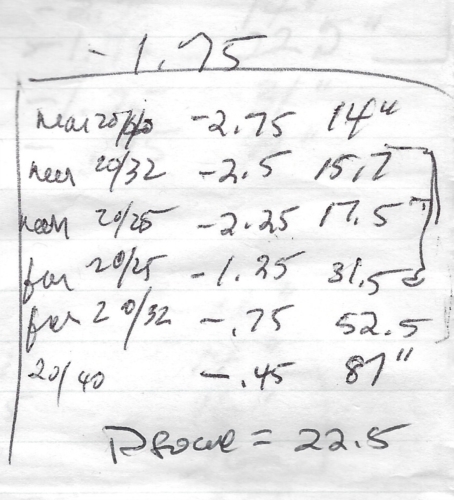 -1.75
near 20/40 -2.75 14"
near 20/32 -2.5 15.7
near 20/25 -2.25 17.5"
far 20/25 -1.25 31.5
far 20/32 -.75 52.5
20/40 -.45 87"
= 22.5